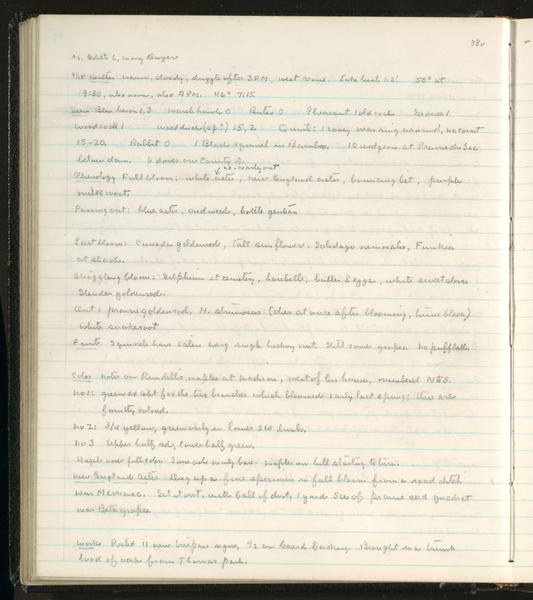 98v
9/18 Weather warm, cloudy, drizzle after 3 P.M., west wind. Lake level 1.2' 50° at
9:30, also noon, also 9 P.M. 46° 7:15
Seen Blue heron 1, 3 Marsh hawk 0 Buteo 0 Pheasant 1 old cock Grouse 1
Woodcock 1 Woodducks (sp?) 15, 2 Quail: 1 covey
15-20. Rabbit 0 1 Black squirrel in Baraboo. 10 widgeon at Prairie du Sac
below dam. 6 doves on County A.
no. nearly out
Phenology Full bloom: white aster, New England aster, bouncing bet, purple
milkwort
Passing out: blue aster, cudweed, bottle gentian
Last bloom: Canada goldenrod, tall sunflower. Solidago nemoralis,
at shack.
Straggling bloom: Delphinium at cemetery, harebell, butter & eggs, white sweet clover
Slender goldenrod.
Out: prairie goldenrod, H. strumosus (dies at once after blooming, turns black)
white snakeroot
Fruit: Squirrels have eaten every single hickory nut. Still some grapes. No puffballs.
Color notes on Rundell's maples at Madison, west of his house, numbered N & S.
No 1: green except for the two branches which bloomed early last spring; these are
faintly colored.
No 2: 3/4 yellow, green only in lower SW limbs.
No 3 Upper half red, lower half green.
Hazels near full color. Some ash nearly bare. Maples on hill starting to turn.
New England Aster Dug up a fine specimen in full bloom from a road ditch
near Merrimac. Set it out, with ball of dirt, 1 yard SE of prairie seed quadrat
near Beta grapes.
Work: Posted 11 new trespass signs, 1/2 on board backing. Brought one trunk
load of oak from Thomas park.